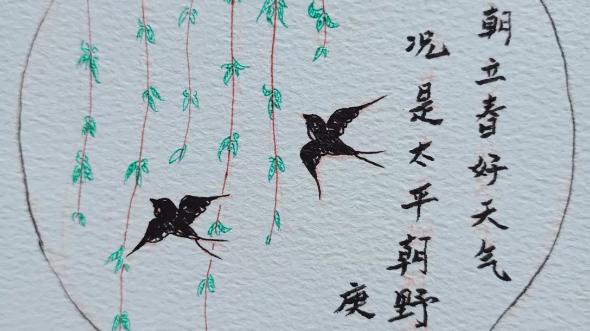 朝立春好天气
况是太平朝野
庚